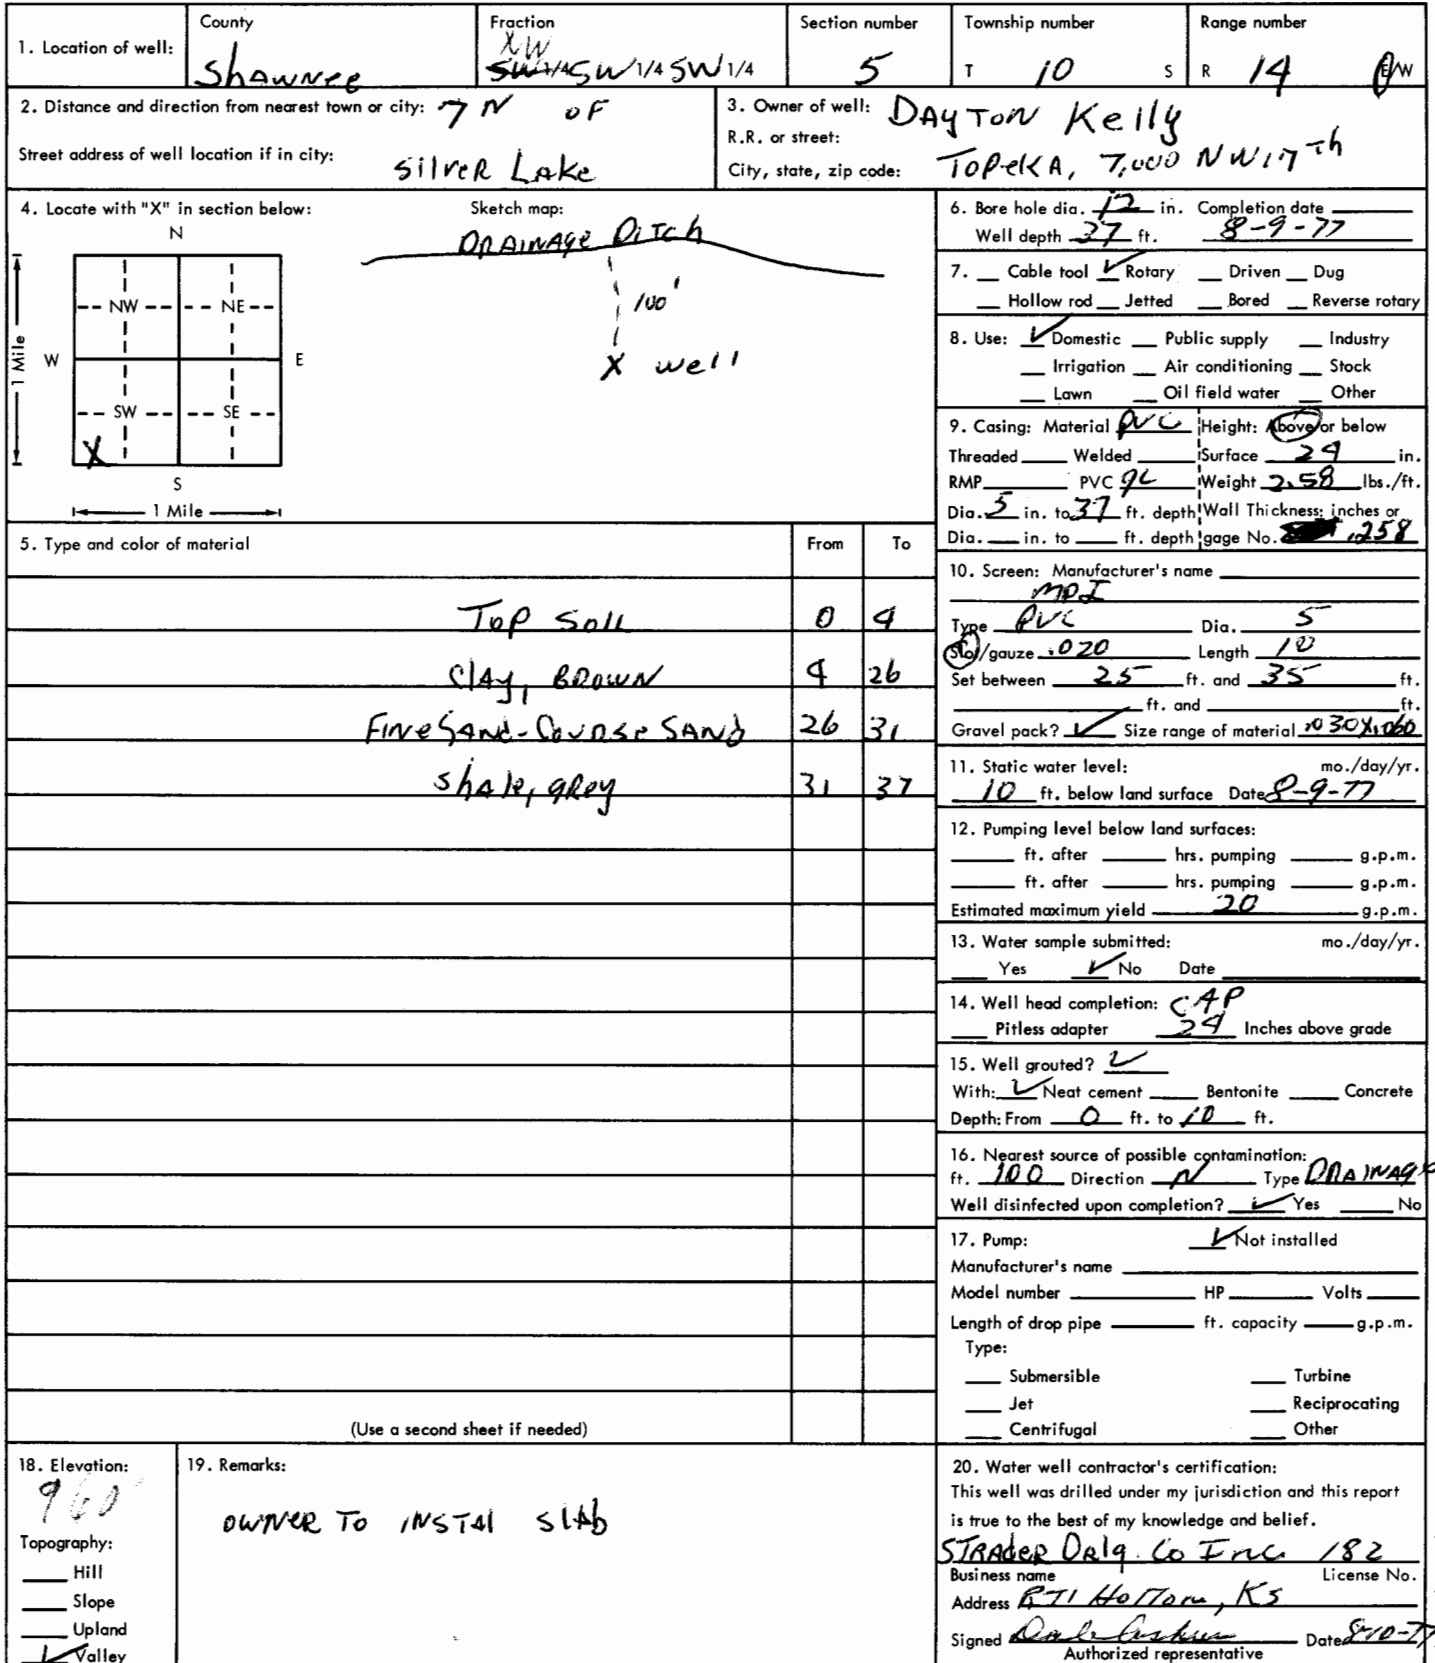 1. Location of well: County Shawnee Fraction SW 1/4 SW 1/4 SW 1/4 Section number 5 Township number T 10 S Range number R 14 E/W
2. Distance and direction from nearest town or city: 7 N OF
Street address of well location if in city: Silver Lake
3. Owner of well: DAYTON Kelly
R.R. or street:
City, state, zip code: TOPEKA, 7,000 NW 17th
4. Locate with "X" in section below:
N
NW NE
W E
SW SE
X
S
1 Mile
1 Mile
Sketch map:
DRAINAGE DITCH
100'
X well
5. Type and color of material From To
Top Soil 0 4
Clay, BROWN 4 26
FINE SAND-COURSE SAND 26 31
Shale, grey 31 37
(Use a second sheet if needed)
6. Bore hole dia. 12 in. Completion date
Well depth 37 ft. 8-9-77
7. Cable tool ✓ Rotary Driven Dug
Hollow rod Jetted Bored Reverse rotary
8. Use: ✓ Domestic Public supply Industry
Irrigation Air conditioning Stock
Lawn Oil field water Other
9. Casing: Material PVC Height: Above or below
Threaded Welded Surface 24 in.
RMP PVC Weight 2.58 lbs./ft.
Dia. 5 in. to 37 ft. depth Wall Thickness: inches or
Dia. in. to ft. depth gage No. .258
10. Screen: Manufacturer's name
MPI
Type PVC Dia. 5
Slot/gauze .020 Length 10
Set between 25 ft. and 35 ft.
ft. and ft.
Gravel pack? ✓ Size range of material .030X.060
11. Static water level: mo./day/yr.
10 ft. below land surface Date 8-9-77
12. Pumping level below land surfaces:
ft. after hrs. pumping g.p.m.
ft. after hrs. pumping g.p.m.
Estimated maximum yield 20 g.p.m.
13. Water sample submitted: mo./day/yr.
Yes ✓ No Date
14. Well head completion: CAP
Pitless adapter 24 Inches above grade
15. Well grouted? ✓
With: ✓ Neat cement Bentonite Concrete
Depth: From 0 ft. to 10 ft.
16. Nearest source of possible contamination:
ft. 100 Direction N Type DRAINAGE
Well disinfected upon completion? ✓ Yes No
17. Pump: ✓ Not installed
Manufacturer's name
Model number HP Volts
Length of drop pipe ft. capacity g.p.m.
Type:
Submersible Turbine
Jet Reciprocating
Centrifugal Other
18. Elevation:
960'
Topography:
Hill
Slope
Upland
✓ Valley
19. Remarks:
OWNER TO INSTAl SlAb
20. Water well contractor's certification:
This well was drilled under my jurisdiction and this report
is true to the best of my knowledge and belief.
STRADER Drlg. Co Inc. 182
Business name License No.
Address RT1 Holton, KS
Signed Date 8-10-77
Authorized representative